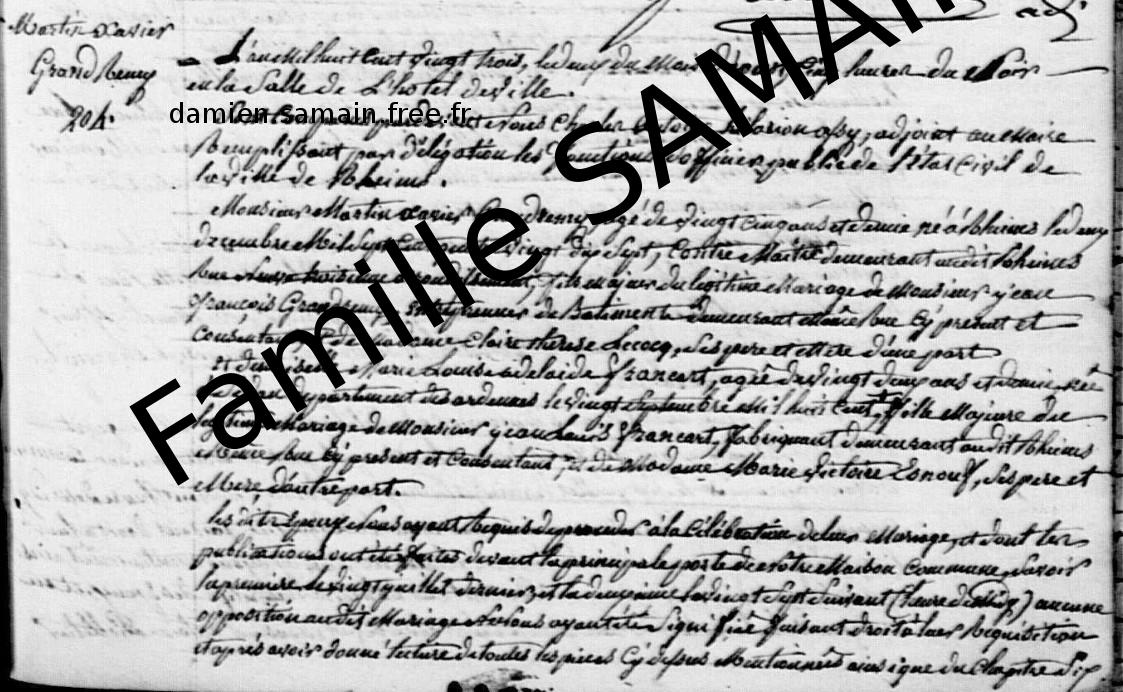 Martin Xavier
Grandremy
204.
L'an Mil huit Cent Vingt trois, le deux du Mois D'aout Cinq heures du Soir
en la Salle de L'hotel de Ville.
damien.samain.free.fr
Nous Charles Hilarion assy, adjoint au Maire
Remplissant par délégation les fonctions d'officier public de l'Etat Civil de
la Ville de Rheims.
Monsieur Martin Xavier Grandremy agé de Vingt Cinq ans et demie né à Rheims le deux
décembre Mil Sept Cent quatre Vingt dix Sept, Contre Maitre demeurant audit Rheims
Rue troisieme arrondissement, fils majeur du légitime Mariage de Monsieur jean
françois Grandremy Entrepreneur de Batiments demeurant même Rue Cy present et
Consentant et de Madame Claire therese Lecocq, Ses pere et Mere d'une part
Et demoiselle Marie Louise adelaide francart, agée de Vingt deux ans et demie née
département des ardennes le Vingt Septembre Mil huit Cent, fille Majeure du
légitime Mariage de Monsieur jean Louis francart, fabriquant demeurant audit Rheims
Même Rue Cy present et Consentant, et de Madame Marie Victoire Esnouf, Ses pere et
Mere, d'autre part.
les dits Epoux Nous ayant Requis de proceder à la Célébration de leur Mariage, et dont les
publications ont été faites devant la principale porte de Notre Maison Commune, Savoir
la premiere le Vingt juillet dernier, et la deuxieme le Vingt Sept Suivant (heure de Midy) aucune
opposition audit Mariage Ne Nous ayant été Signifiée faisant droit à leur Requisition
et après avoir donné lecture de toutes les pieces Cy dessus Mentionnées ainsi que du Chapitre Six
Famille SAMAIN